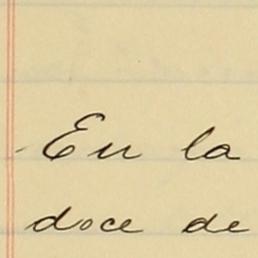 En la
doce de